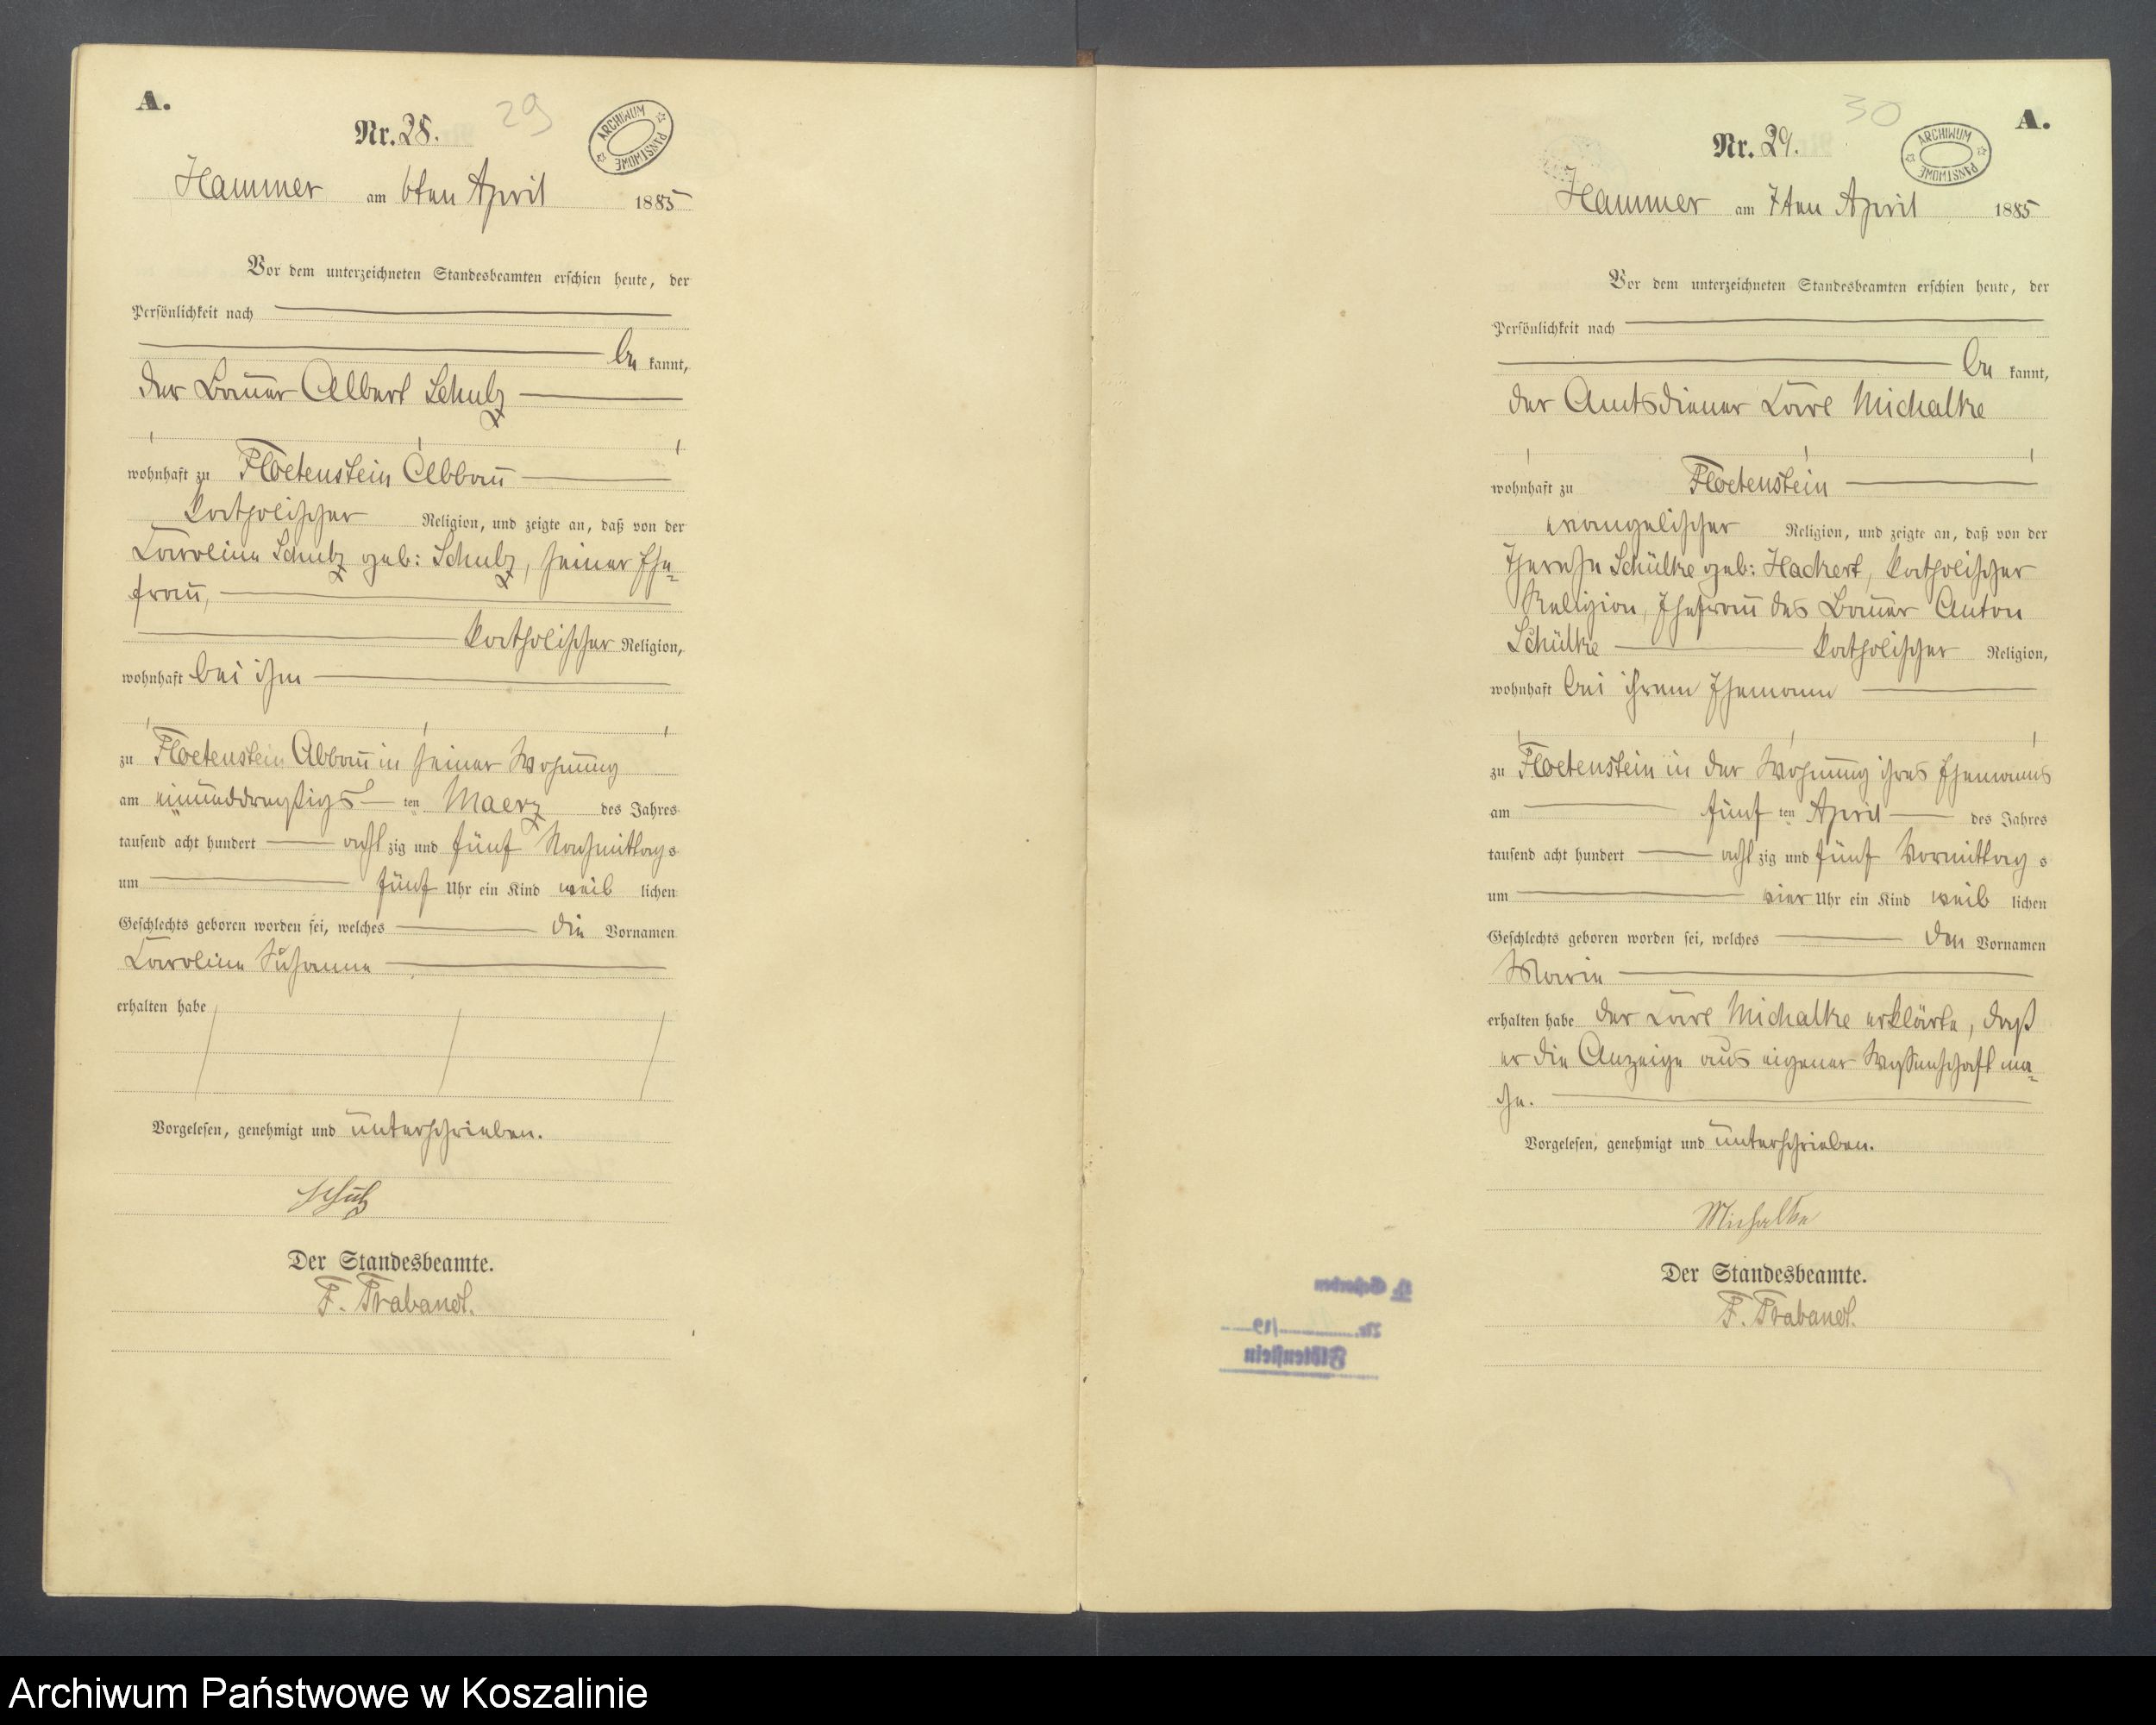 A.
29
Nr. 28.
ARCHIWUM PAŃSTWOWE
Hammer am 6ten April 1885
Vor dem unterzeichneten Standesbeamten erschien heute, der
Persönlichkeit nach
be kannt,
der Bauer Albert Schulz
wohnhaft zu Floetenstein Abbau
katholischer Religion, und zeigte an, daß von der
Caroline Schulz geb: Schulz, seiner Ehe-
frau,
katholischer Religion,
wohnhaft bei ihm
zu Floetenstein Abbau in seiner Wohnung
am einunddreyßigs ten Maerz des Jahres
tausend acht hundert acht zig und fünf Nachmittags
um fünf Uhr ein Kind weib lichen
Geschlechts geboren worden sei, welches die Vornamen
Caroline Susanne
erhalten habe
Vorgelesen, genehmigt und unterschrieben.
Schulz
Der Standesbeamte.
F. Trabandt.
30
A.
Nr. 29.
ARCHIWUM PAŃSTWOWE
Hammer am 7ten April 1885
Vor dem unterzeichneten Standesbeamten erschien heute, der
Persönlichkeit nach
be kannt,
der Amtsdiener Carl Michalke
wohnhaft zu Floetenstein
evangelischer Religion, und zeigte an, daß von der
Therese Schülke geb: Hackert, katholischer
Religion, Ehefrau des Bauer Anton
Schülke katholischer Religion,
wohnhaft bei ihrem Ehemann
zu Floetenstein in der Wohnung ihres Ehemanns
am fünf ten April des Jahres
tausend acht hundert acht zig und fünf Vormittag s
um vier Uhr ein Kind weib lichen
Geschlechts geboren worden sei, welches den Vornamen
Marie
erhalten habe der Carl Michalke erklärte, daß
er die Anzeige aus eigener Wyssenschaft ma-
che.
Vorgelesen, genehmigt und unterschrieben.
Michalke
Der Standesbeamte.
F. Trabandt.
Nr. /19
Flötenstein
Archiwum Państwowe w Koszalinie